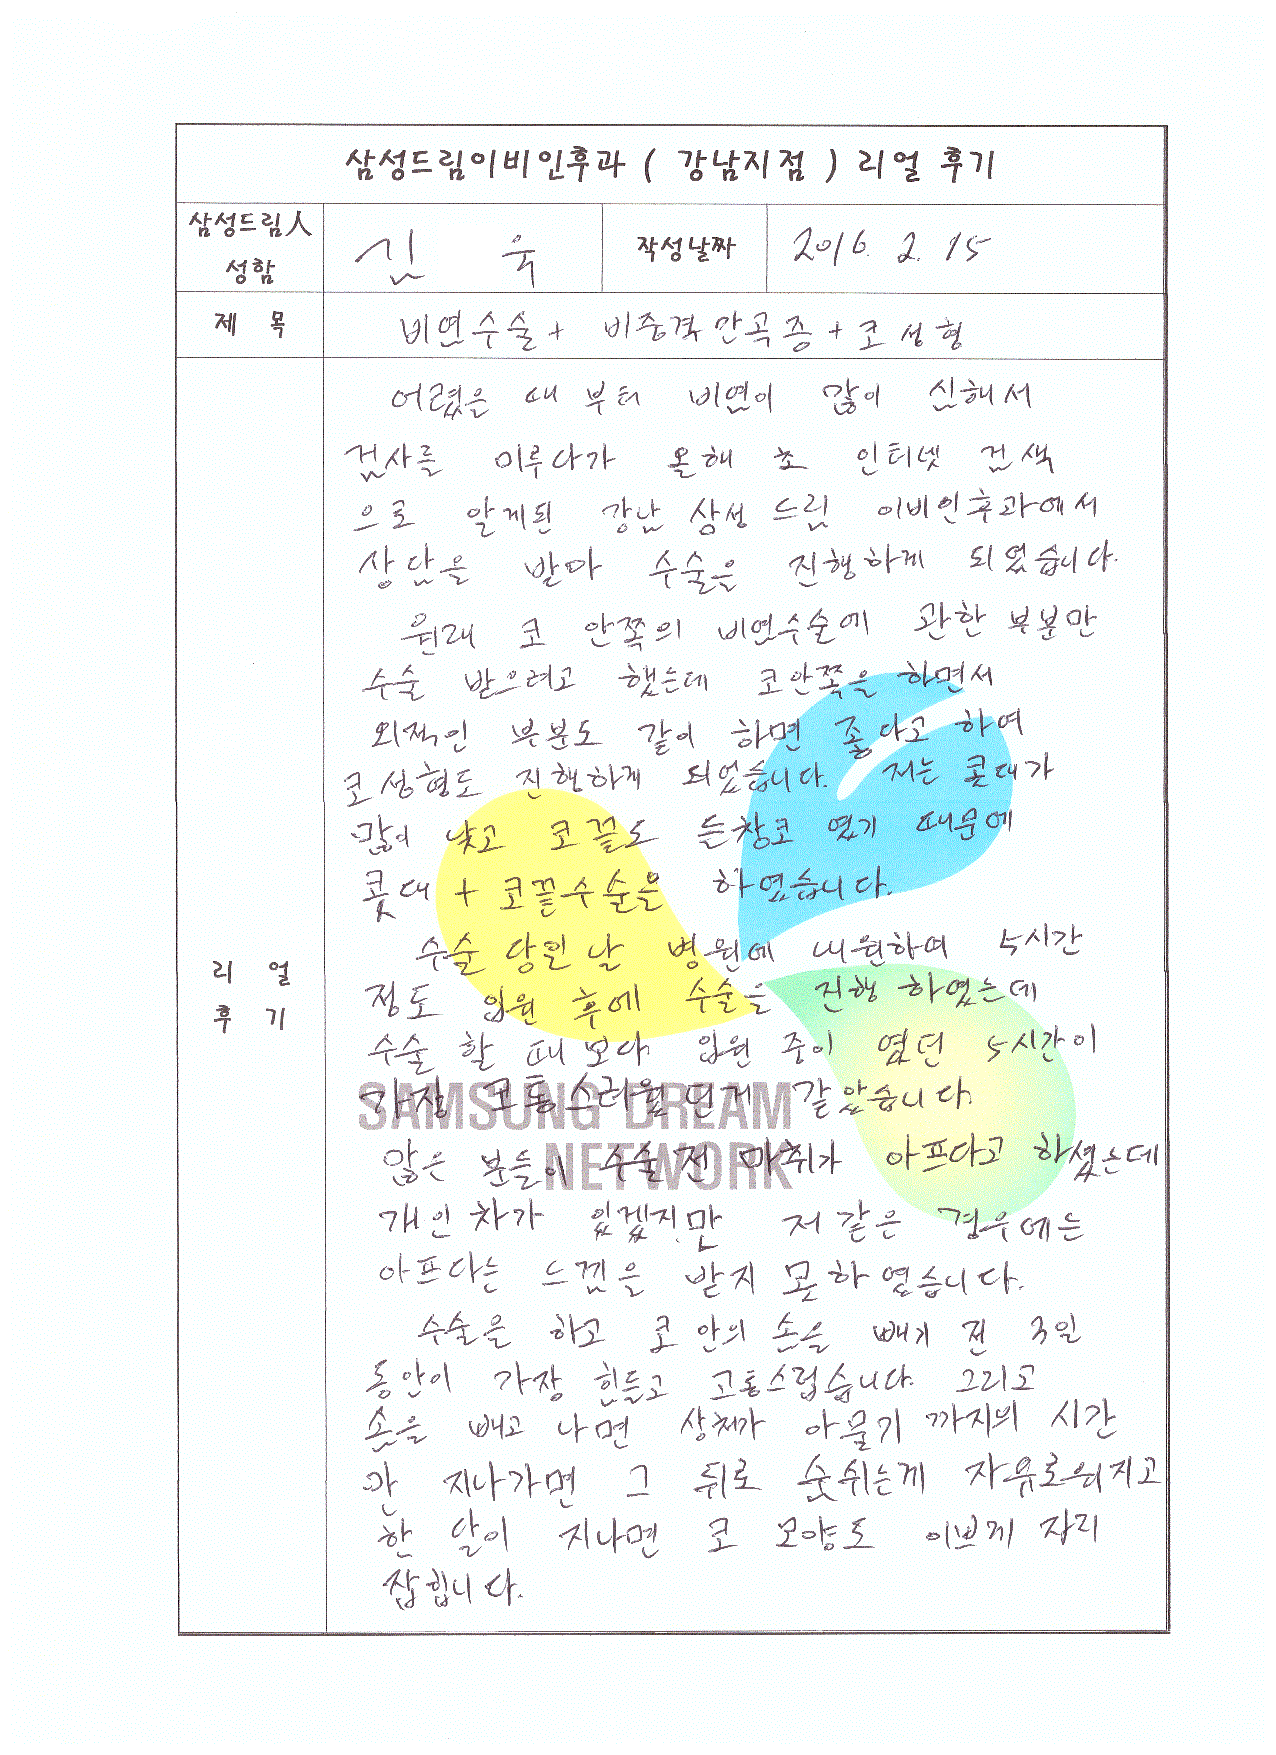 삼성드림이비인후과 ( 강남지점 ) 리얼 후기
삼성드림人 성함
김 욱
작성날짜
2016. 2. 15
제 목
비염수술 + 비중격만곡증 + 코 성형
리 얼
후 기
어렸을 때 부터 비염이 많이 심해서
검사를 미루다가 올해 초 인터넷 검색
으로 알게된 강남 삼성 드림 이비인후과에서
상담을 받아 수술을 진행하게 되었습니다.
원래 코 안쪽의 비염수술에 관한 부분만
수술 받으려고 했는데 코안쪽을 하면서
외적인 부분도 같이 하면 좋다고 하여
코 성형도 진행하게 되었습니다. 저는 콧대가
많이 낮고 코끝도 들창코 였기 때문에
콧대 + 코끝수술을 하였습니다.
수술 당일 날 병원에 내원하여 5시간
정도 입원 후에 수술을 진행 하였는데
수술 할 때 보다 입원 중이 였던 5시간이
가장 고통스러웠던거 같았습니다.
SAMSUNG DREAM
NETWORK
많은 분들이 수술 전 마취가 아프다고 하셨는데
개인차가 있겠지만 저 같은 경우에는
아프다는 느낌을 받지 못하였습니다.
수술을 하고 코 안의 솜을 빼기 전 3일
동안이 가장 힘들고 고통스럽습니다. 그리고
솜을 빼고 나면 상처가 아물기 까지의 시간
만 지나가면 그 뒤로 숨쉬는게 자유로워지고
한 달이 지나면 코 모양도 이쁘게 자리
잡힙니다.